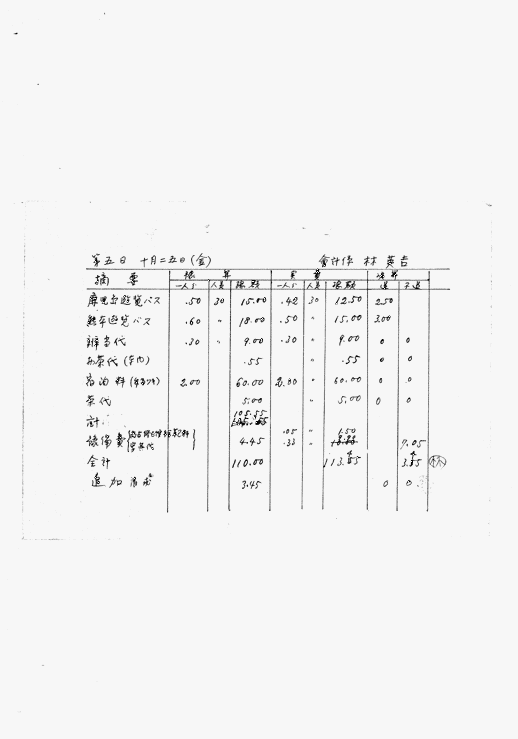 第五日 十月二五日(金) 會計係 林 英吉
摘 要 概 算 実 費 決算
一人分 人員 総額 一人分 人員 総額 過 不過
遊覧バス .50 30 15.00 .42 30 12.50 2.50
熊本遊覧バス .60 〃 18.00 .50 〃 15.00 3.00
辨当代 .30 〃 9.00 .30 〃 9.00 0 0
お茶代(車内) .55 〃 .55 0 0
宿泊料 2.00 60.00 2.00 〃 60.00 0 0
茶代 5.00 〃 5.00 0 0
計 105.55
予備費 4.45 .05 〃 1.50
.33 〃 9.05
合計 110.00 113. 3. 林
追加 3.45 0 0